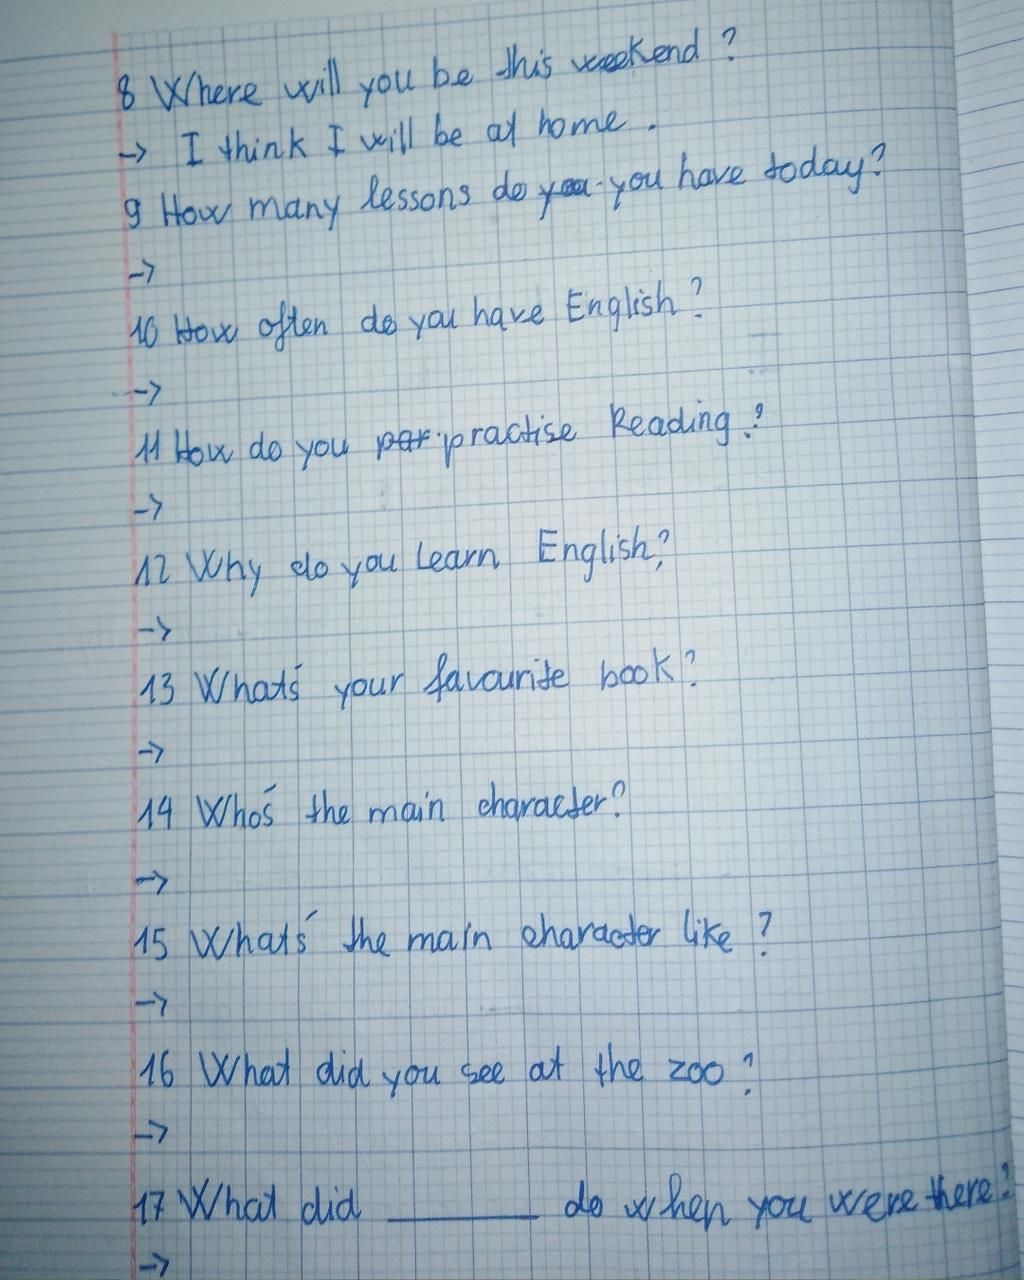 8 Where will you be this weekend?
-> I think I will be at home.
9 How many lessons do you you have today?
->
10 How often do you have English?
->
11 How do you per practise Reading?
->
12 Why do you learn English?
->
13 What's your favourite book?
->
14 Who's the main character?
->
15 What's the main character like?
->
16 What did you see at the zoo?
->
17 What did ______ do when you were there?
->